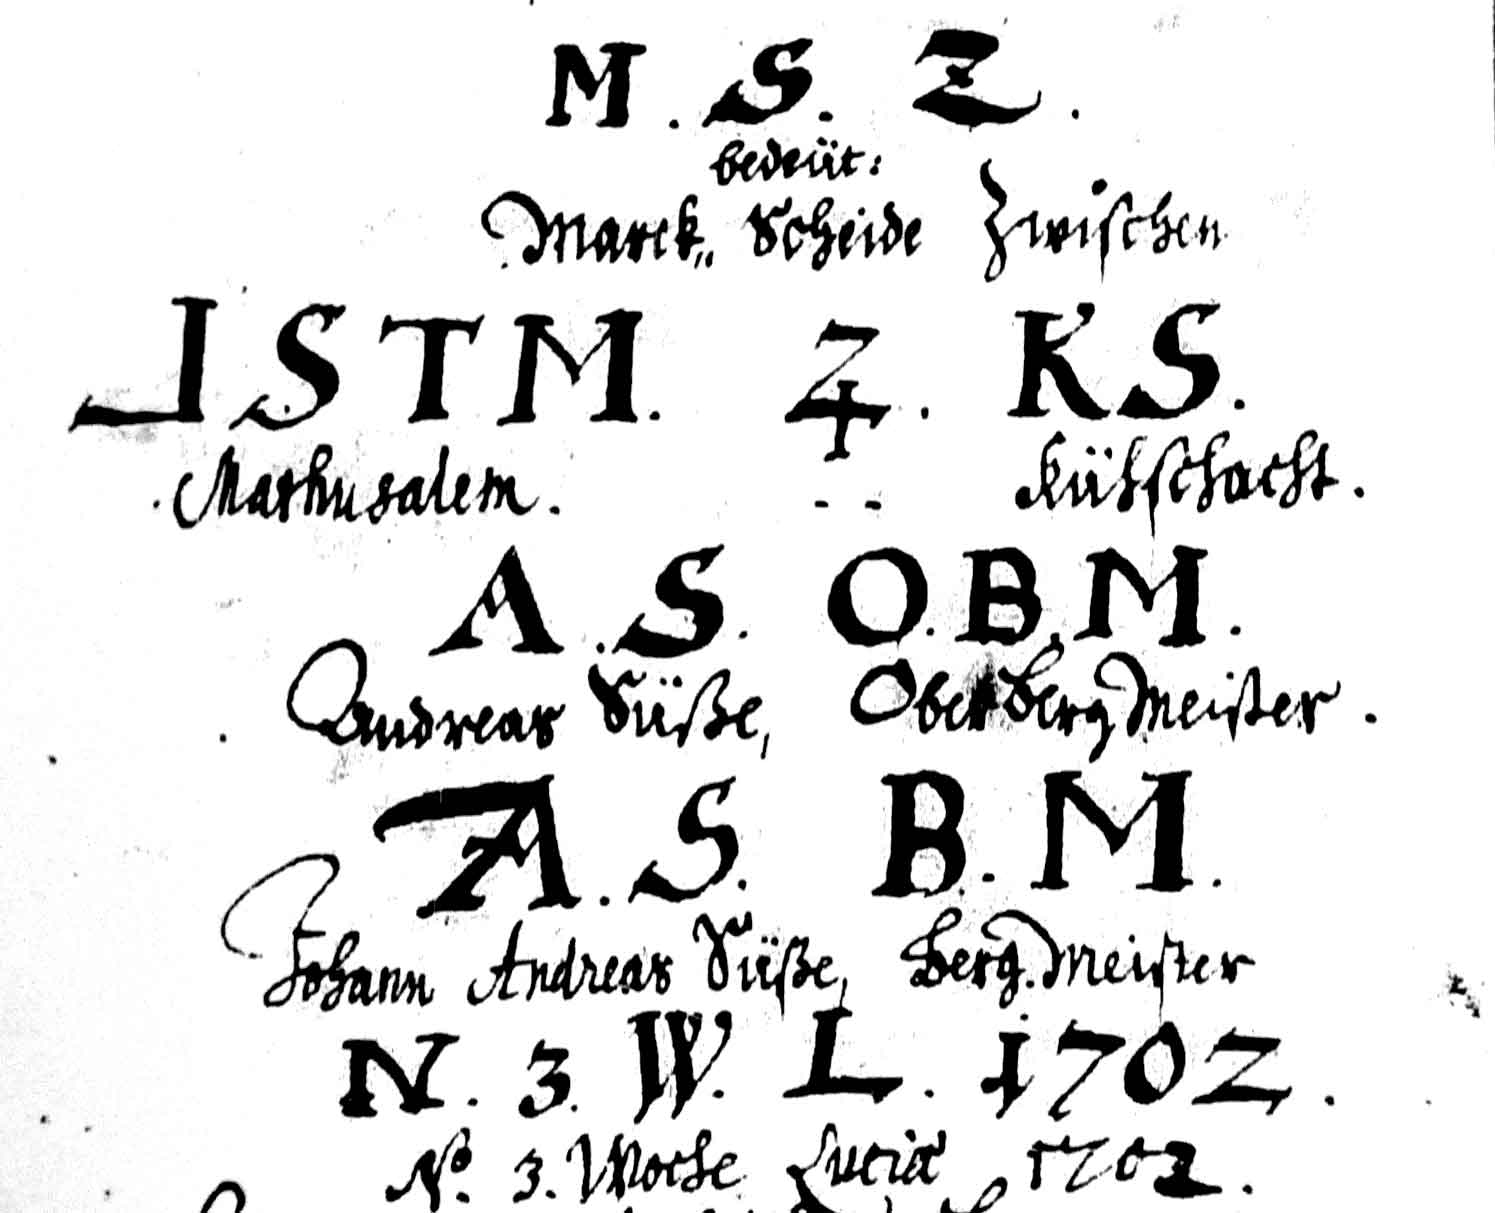 M. S. Z.
bedeüt:
Marck„ Scheide Zwischen
ISTM. 4. KS.
Mathusalem. - - Kühschacht.
A. S. O. B. M.
Andreas Süße, OberBergMeister.
A. S. B. M.
Johann Andreas Süße, Berg.Meister
N. 3. W. L. 1702.
No. 3. Woche Luciæ 1702.